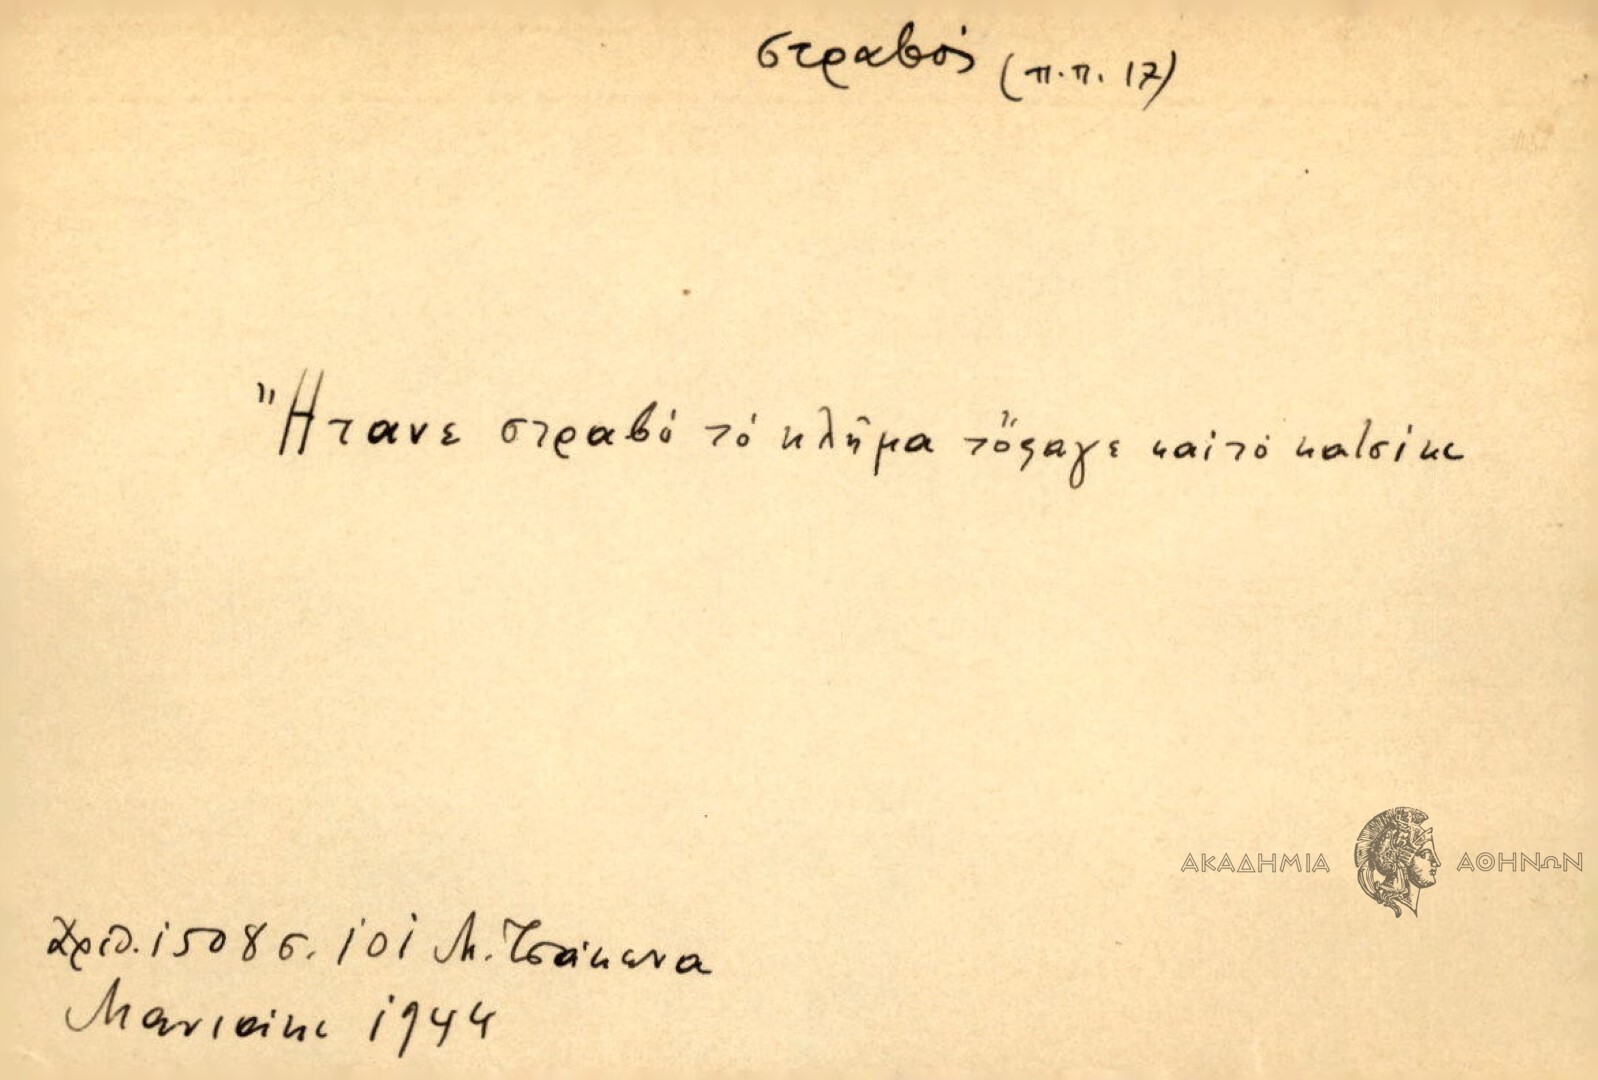 στραβός (π.π. 17)
Ἤτανε στραβό τό κλῆμα τὄφαγε καί τό κατσίκι
ΑΚΑΔΗΜΙΑ ΑΘΗΝΩΝ
Ἀριθ. 1508 σ. 101 Μ. Τσάκωνα
Μανιάκι 1944